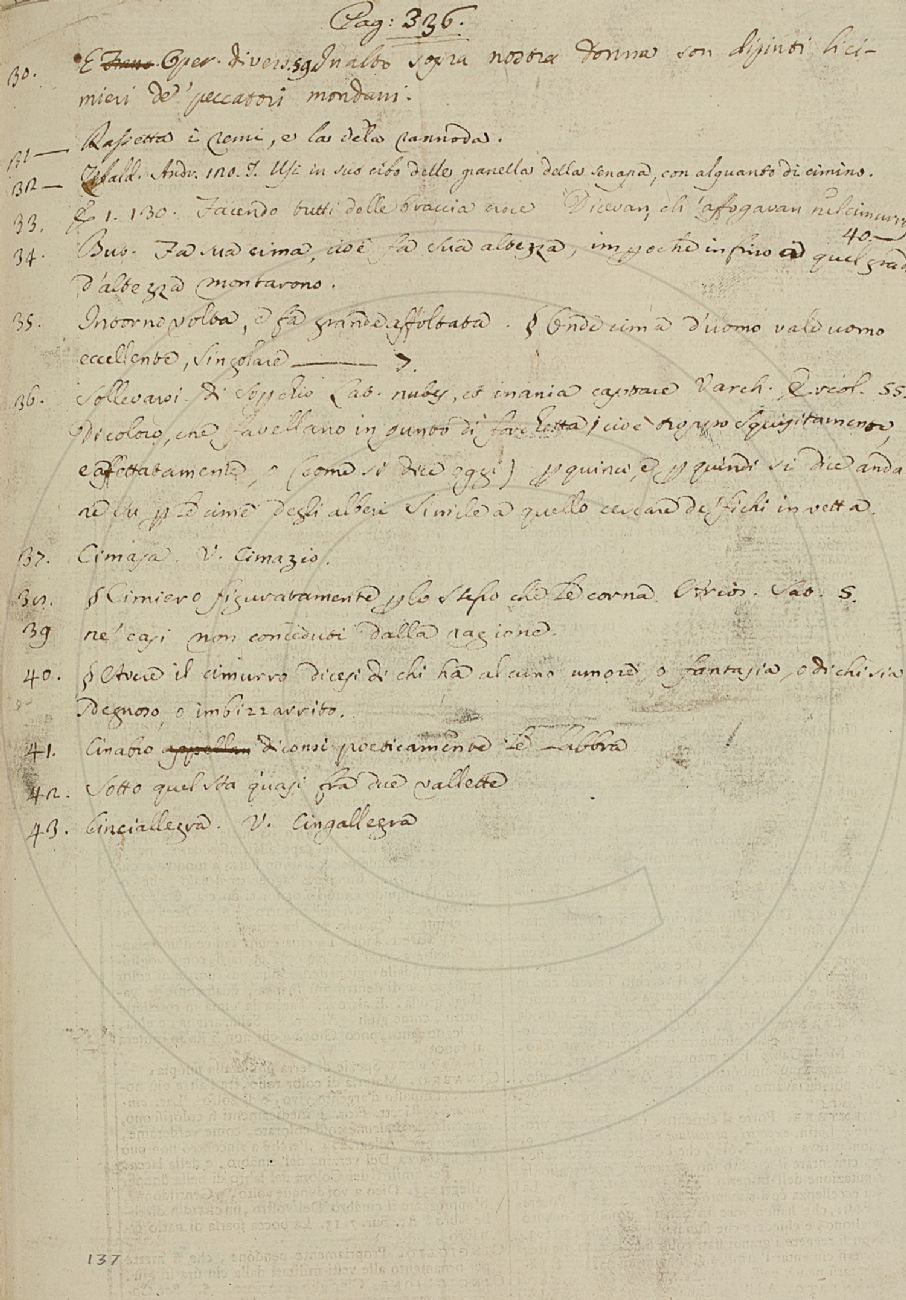 Pag: 336.
30. E Franc. Oper. divers. 59. In alto sopra nostra donna son dipinti li ci-
mieri de' peccatori mondani.
31 — Rassetta i remi, e la vela rannoda.
32 — Tebald. Andr. 120. I. Usi in suo cibo delle granella della senapa, con alquanto di cimino.
33. E 1. 130. Facendo tutti delle braccia croce Dicevan, ch' s'affogavan nel cimurro
40. —
34. But. Fa sua cima, cioè fa sua altezza, imperoché infino ad quel grado
d'altezza montarono.
35. Intorno volta, e fa grande affoltata. § Onde cima d'uomo vale uomo
eccellente, singolare ——— 7.
36. Sollevarsi di soperchio Lat. nubes, et inania captare Varch. Ercol. 55.
Di coloro, che favellano in punta di forchetta, cioè troppo squisitamente,
e affettatamente, e (come si dice oggi) per quinci, e per quindi si dice anda
re su per le cime degli alberi simile a quello cercare de' fichi in vetta.
37. Cimasa. V. Cimazio.
38. § Cimiero figuratamente per lo stesso che le corna. Arios. Sat. 5.
39 ne' casi non conceduti dalla ragione.
40. § Avere il cimurro dicesi di chi ha alcuno umore, o fantasia, o di chi sia
sdegnoso, o imbizzarrito.
41. Cinabro appellan diconsi poeticamente le Labbra
42. Sotto quel sta quasi fra due vallette
43. Cinciallegra. V. Cingallegra
137